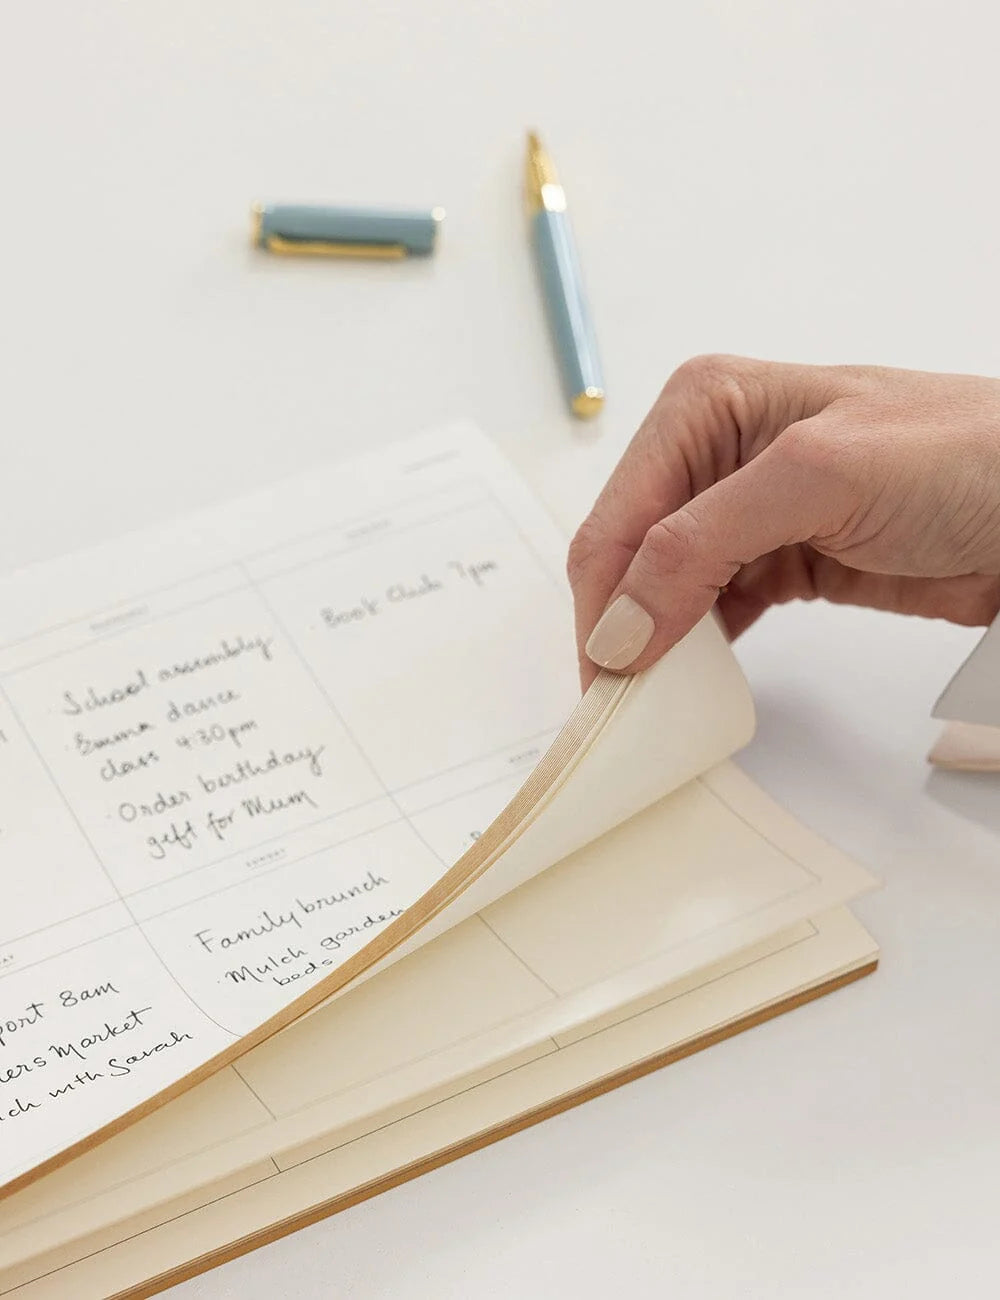 Book Club 7pm
School assembly
Emma dance
class 4:30pm
Order birthday
gift for Mum
SUNDAY
NOTES
Family brunch
Mulch garden
beds
port 8am
ers Market
ch with Sarah